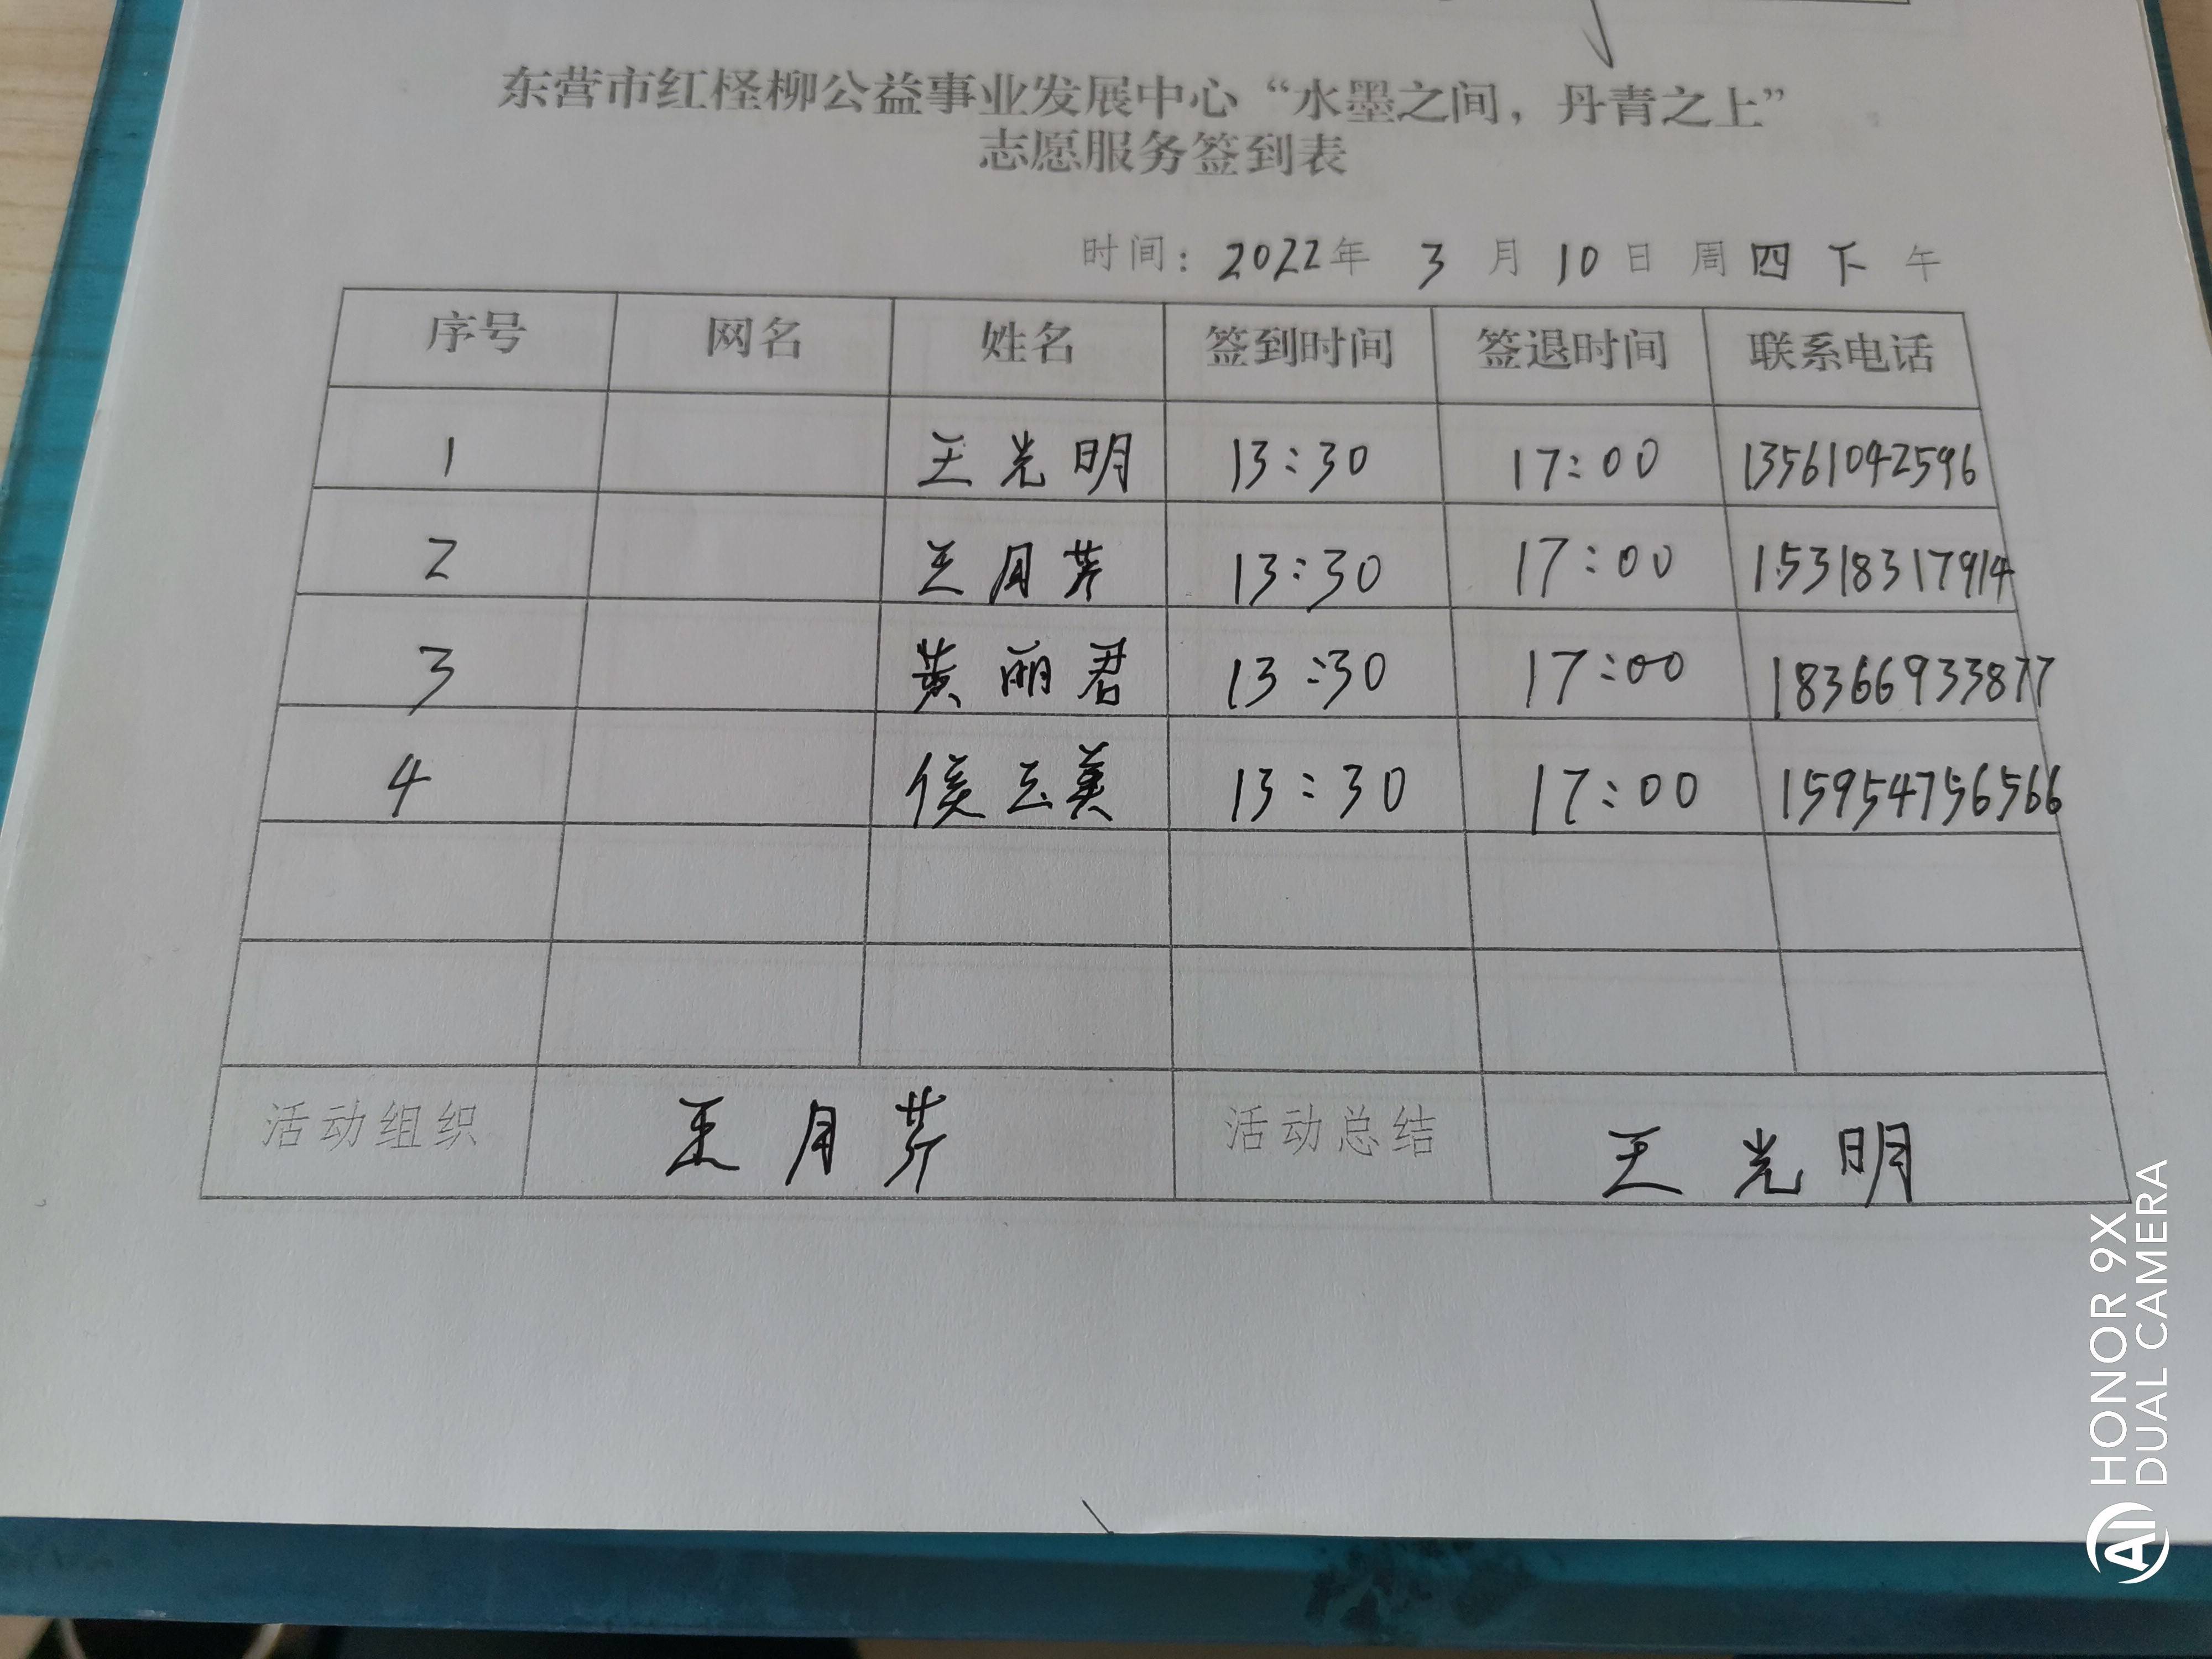 东营市红柽柳公益事业发展中心“水墨之间，丹青之上”
志愿服务签到表
时间：2022年 3 月 10 日 周 四 下 午
序号 网名 姓名 签到时间 签退时间 联系电话
1 王光明 13:30 17:00 13561042596
2 王月芹 13:30 17:00 15318317914
3 黄丽君 13:30 17:00 18366933877
4 侯玉美 13:30 17:00 15954756566
活动组织 王月芹 活动总结 王光明
HONOR 9X
DUAL CAMERA
AI